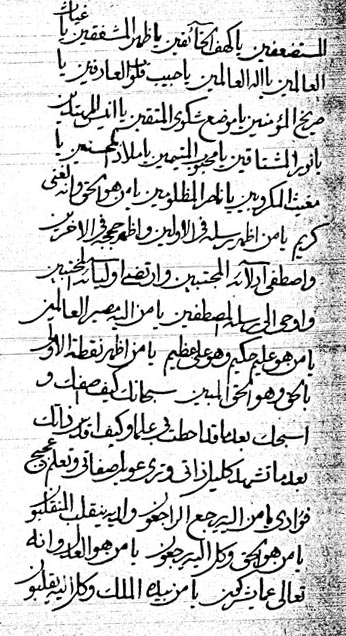 غياث
المستضعفين يا كهف الخائفين يا ظهر المشفقين يا
العالمين يا اله العالمين يا حبيب قلوب العارفين يا
صريخ المؤمنين يا موضع شكوى المتقين يا انيس المريدين
يا نور المشتاقين يا محبوب المتيمين يا ملاذ المحسنين يا
مغيث المكروبين يا ناصر المظلومين يا من هو الحق وانه لغني
كريم يا من اظهر رسله في الاولين واظهر حججه في الاخرين
واصطفى ادلائه المجتبين وارتضى اوليائه المحبين
واوحى الى رسله المصطفين يا من اليه يصير العالمين
يا من هو عليم حكيم وهو علي عظيم يا من اظهر نقطة الاولى
بالحق وهو الحق المبين سبحانك كيف اصفك و
اسبحك بعد ما قد احطت بي علما وكيف اقدس ذاتك
بعد ما تشهد كليل ذاتي وترى عويل صفاتي وتعلم عجيج
فؤادي يا من اليه يرجع الراجعون ولديه ينقلب المنقلبون
يا من هو الحق وكل اليه يرجعون يا من هو العدل وانه
تعالى عما يشركون يا من بيده الملك وكل اليه يقلبون